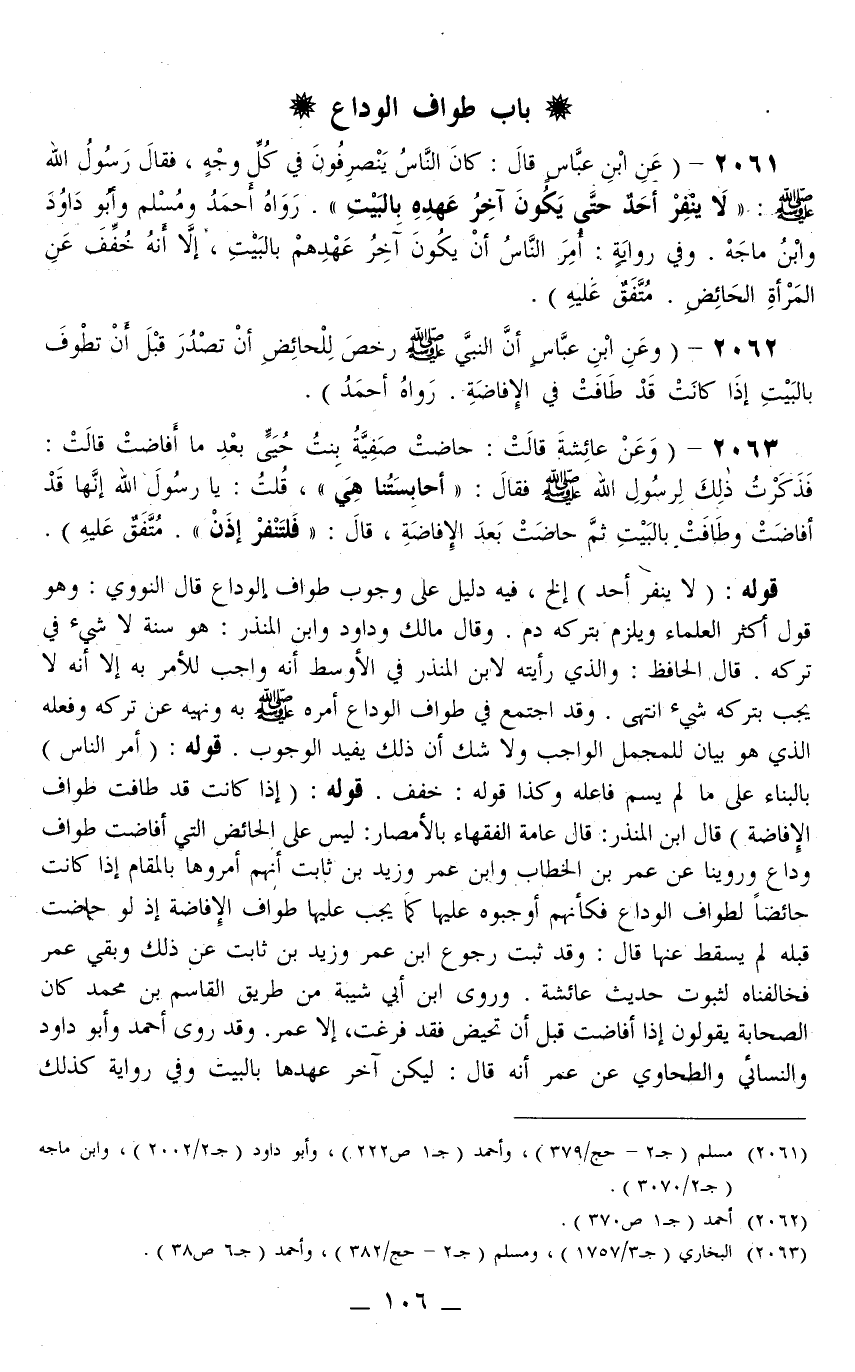 باب طواف الوداع
٢٠٦١ – ( عَنِ ابْنِ عبَّاسٍ قالَ : كانَ النَّاسُ يَنْصرِفُونَ في كُلِّ وجْهٍ ، فقالَ رَسُولُ الله
ﷺ : « لَا ينْفَرْ أحَدٌ حتَّى يَكُونَ آخِرُ عَهدِهِ بالبَيْتِ » . رَوَاهُ أَحمَدُ ومُسْلم وأبُو دَاوُدَ
وابْنُ ماجَهْ . وفي روايَةٍ : أُمِرَ النَّاسُ أنْ يكُونَ آخِرُ عَهْدِهمْ بالبَيْتِ ، إلَّا أَنهُ خُفِّفَ عَنِ
المَرْأةِ الحَائضِ . مُتَّفَقٌ عَليهِ ) .
٢٠٦٢ – ( وعَنِ ابْنِ عبَّاسٍ أنَّ النبيَّ ﷺ رخصَ لِلْحائضِ أنْ تصْدُرَ قبْلَ أَنْ تطْوفَ
بالبَيْتِ إذَا كانَتْ قَدْ طَافَتْ في الإفاضَةِ . رَواهُ أحمَدُ ) .
٢٠٦٣ – ( وَعَنْ عائِشةَ قالَتْ : حاضتْ صَفِيَّةُ بنتُ حُيَيٍّ بعْدِ ما أَفاضتْ قالَتْ :
فَذَكَرْتُ ذٰلِكَ لِرسُولِ الله ﷺ فقالَ : « أحابِستُنا هِيَ » ، قُلتُ : يا رسُولَ الله إنَّها قَدْ
أفاضَتْ وطَافَتْ بالبَيْتِ ثمَّ حاضَتْ بَعدَ الإفاضَةِ ، قالَ : « فَلتَنْفرْ إذَنْ » . مُتَّفَقٌ عَليهِ ) .
قوله : ( لا ينفر أحد ) إلخ ، فيه دليل على وجوب طواف الوداع قال النووي : وهو
قول أكثر العلماء ويلزم بتركه دم . وقال مالك وداود وابن المنذر : هو سنة لا شيء في
تركه . قال الحافظ : والذي رأيته لابن المنذر في الأوسط أنه واجب للأمر به إلا أنه لا
يجب بتركه شيء انتهى . وقد اجتمع في طواف الوداع أمره ﷺ به ونهيه عن تركه وفعله
الذي هو بيان للمجمل الواجب ولا شك أن ذلك يفيد الوجوب . قوله : ( أمر الناس )
بالبناء على ما لم يسم فاعله وكذا قوله : خفف . قوله : ( إذا كانت قد طافت طواف
الإفاضة ) قال ابن المنذر: قال عامة الفقهاء بالأمصار: ليس على الحائض التي أفاضت طواف
وداع وروينا عن عمر بن الخطاب وابن عمر وزيد بن ثابت أنهم أمروها بالمقام إذا كانت
حائضاً لطواف الوداع فكأنهم أوجبوه عليها كما يجب عليها طواف الإفاضة إذ لو حاضت
قبله لم يسقط عنها قال : وقد ثبت رجوع ابن عمر وزيد بن ثابت عن ذلك وبقي عمر
فخالفناه لثبوت حديث عائشة . وروى ابن أبي شيبة من طريق القاسم بن محمد كان
الصحابة يقولون إذا أفاضت قبل أن تحيض فقد فرغت، إلا عمر. وقد روى أحمد وأبو داود
والنسائي والطحاوي عن عمر أنه قال : ليكن آخر عهدها بالبيت وفي رواية كذلك
(٢٠٦١) مسلم ( جـ٢ – حج/٣٧٩ ) ، وأحمد ( جـ١ ص٢٢٢ ) ، وأبو داود ( جـ٢٠٠٢/٢ ) ، وابن ماجه
( جـ٣٠٧٠/٢ ) .
(٢٠٦٢) أحمد ( جـ١ ص٣٧٠ ) .
(٢٠٦٣) البخاري ( جـ١٧٥٧/٣ ) ، ومسلم ( جـ٢ – حج/٣٨٢ ) ، وأحمد ( جـ٦ ص٣٨ ) .
– ١٠٦ –